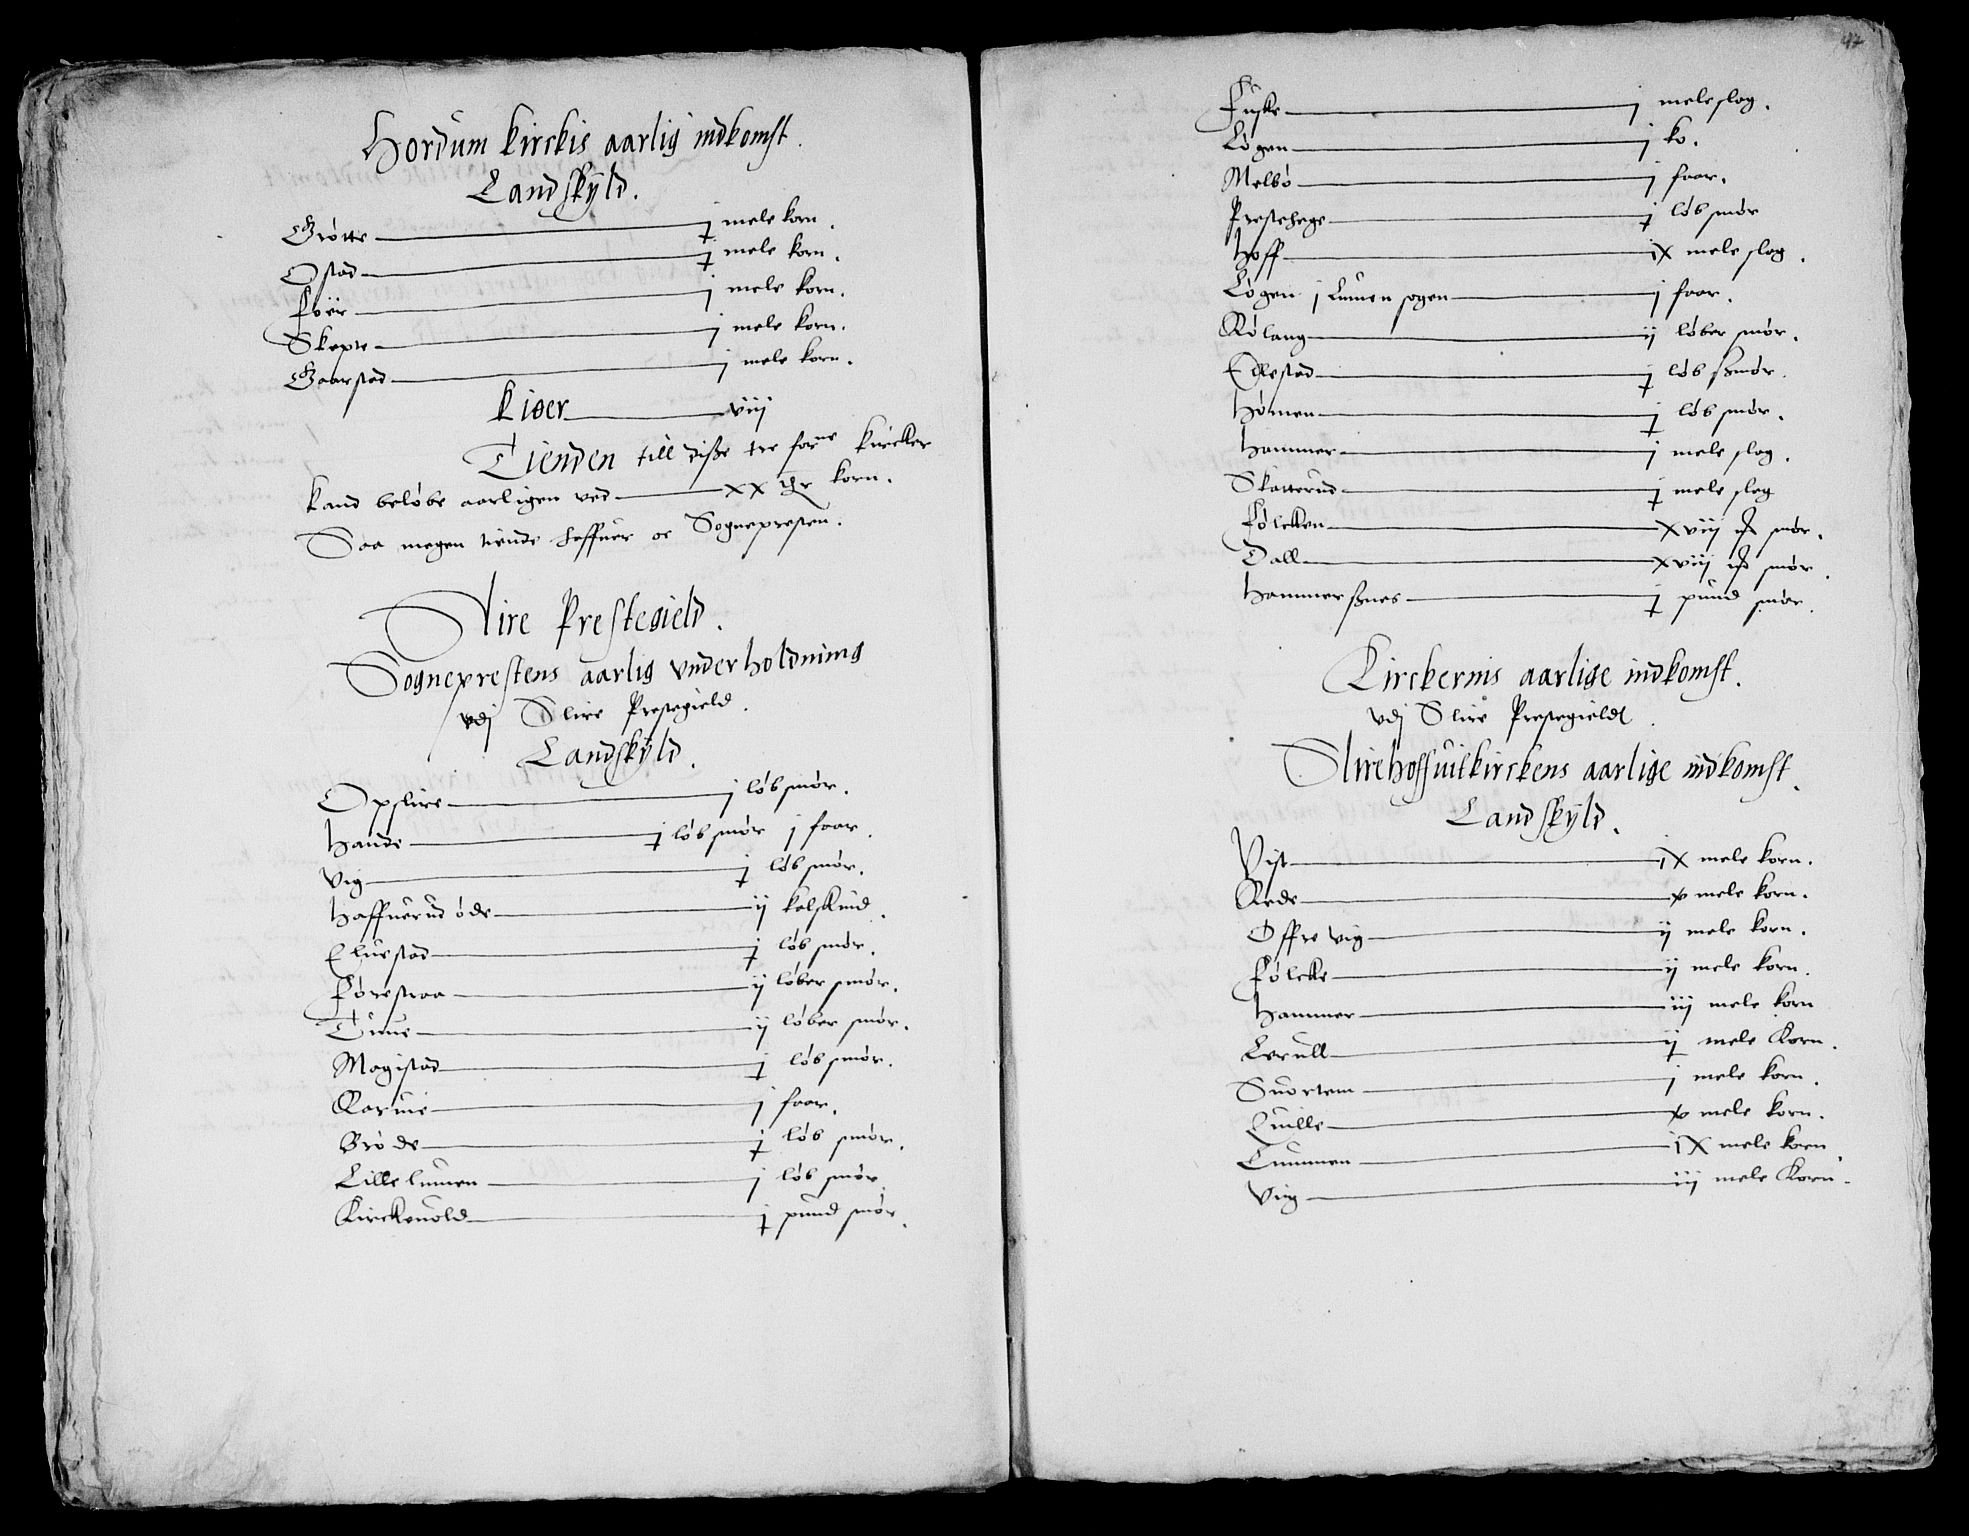 Hordum kirckis aarlig indkomst.
Landskyld.
Grøtte — ɉ mele korn.
Østad — ɉ mele korn.
Føer — j mele korn.
Skepre — j mele korn.
Gaarstad — j mele korn.
Kiør — viij
Tienden till disse tre forne kircker
kand beløbe aarligen ved — xx korn.
Saa megen tiende haffuer oc Sognepresten.
Slire Prestegield.
Sogneprestens aarlig vnderholdning
vdj Slire Prestegield.
Landskyld.
Opslire — j løb smør.
Hande — ɉ løb smør j faar.
Vig — ɉ løb smør.
Haffuerud øde — ij kalskind.
Eluestad — ɉ løb smør.
Førestraa — ij løber smør.
Tuue — ij løber smør.
Magistad — ɉ løb smør.
Karuie — j faar.
Brøde — ɉ løb smør.
Lille lumen — j løb smør.
Kirckeuold — ɉ pund smør.
47
Fuske — j mele slag.
Løgen — j ko.
Melbø — j faar.
Prestehege — ɉ løb smør
Hoff — ix mele slag.
Løgen j Lumen sogen — j faar.
Rølang — ij løber smør.
Ellestad — ɉ løb smør.
Hømen — ɉ løb smør.
Hammer — j mele slag.
Skatterud — ɉ mele slag
Følcken — xviij smør.
Dall — xviij smør.
Hammersnes — ɉ pund smør.
Kirckernis aarlige indkomst.
vdj Slire Prestegield.
Slirehoffuitkirckens aarlige indkomst.
Landskyld.
Vist — ix mele korn.
Rede — v mele korn.
Offre vig — ij mele korn.
Følcke — ij mele korn.
Hammer — iij mele korn
Lerull — ij mele Korn.
Suortem — j mele korn.
Quille — v mele korn.
Lummen — ix mele korn.
Viig — iij mele Korn.